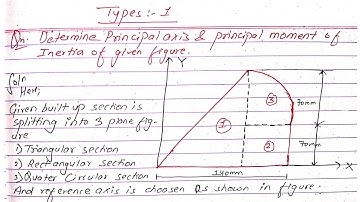 Types:- 1
Qn: Determine Principal axis & principal moment of
Inertia of given figure.
Soln
Here,
Given built up section is
splitting into 3 plane fig-
ure
1) Triangular section
2) Rectangular section
3) Quater Circular section
And reference axis is choosen as shown in figure.
Y
3
70mm
1
2
70mm
X
140mm